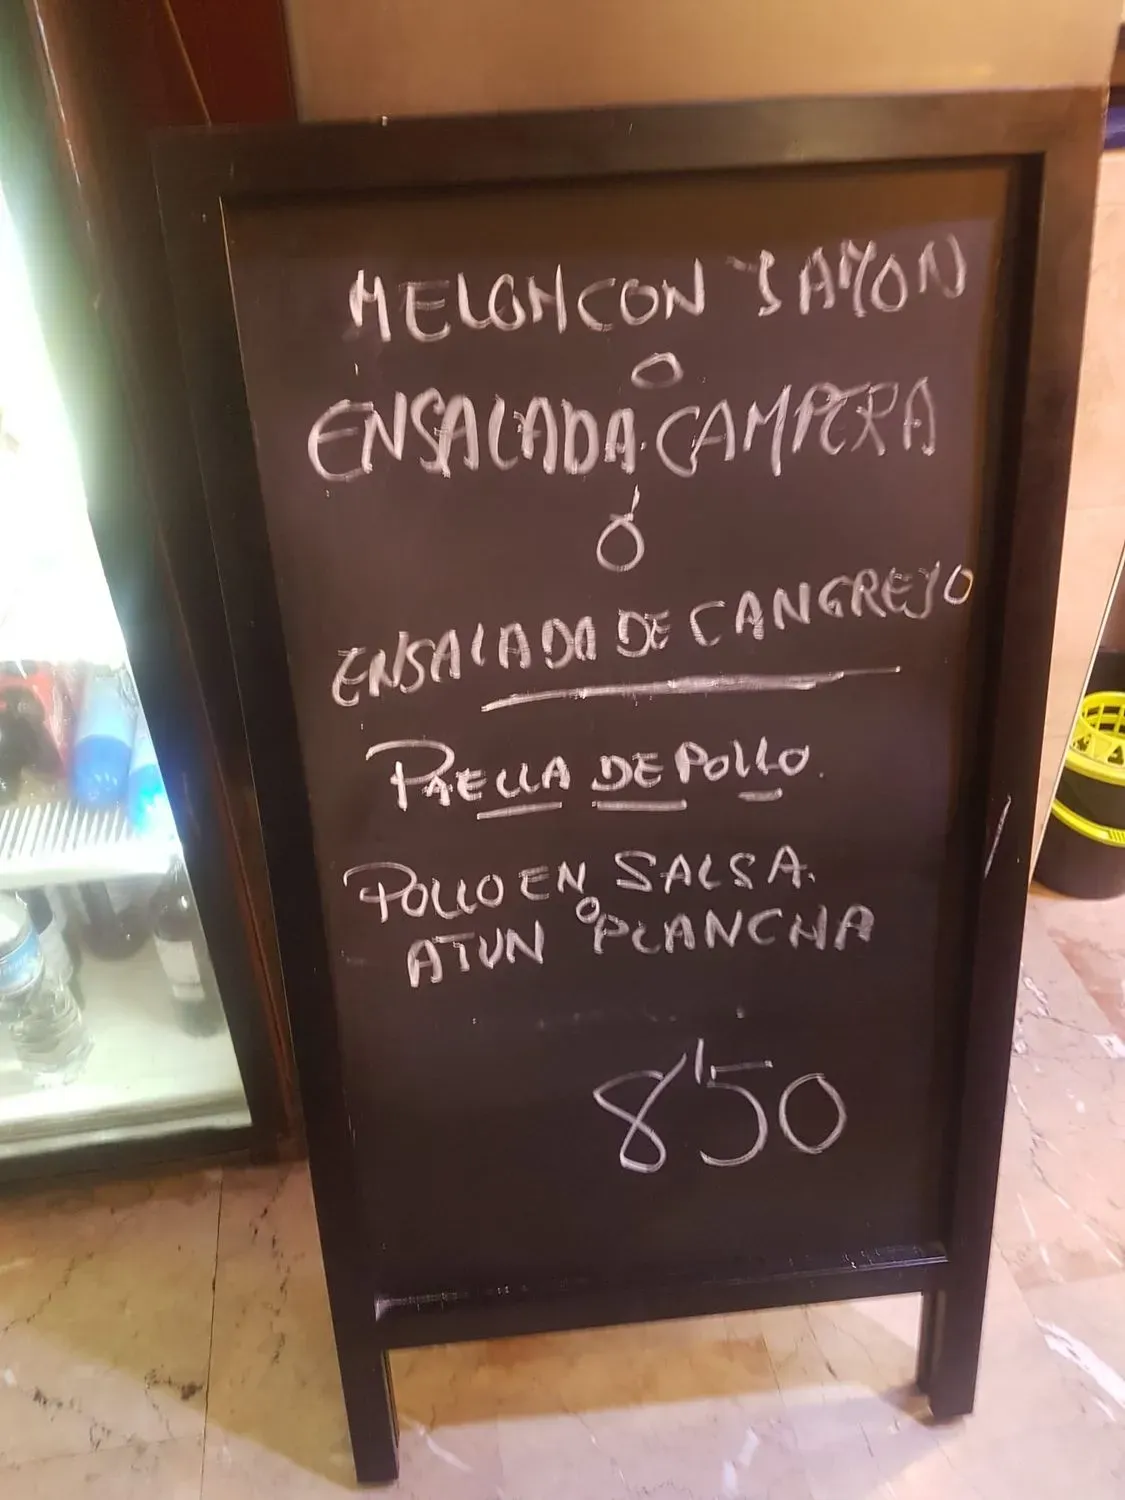 MELON CON JAMON
O
ENSALADA CAMPERA
Ó
ENSALADA DE CANGREJO
PAELLA DE POLLO.
POLLO EN SALSA.
O
ATUN PLANCHA
8'50